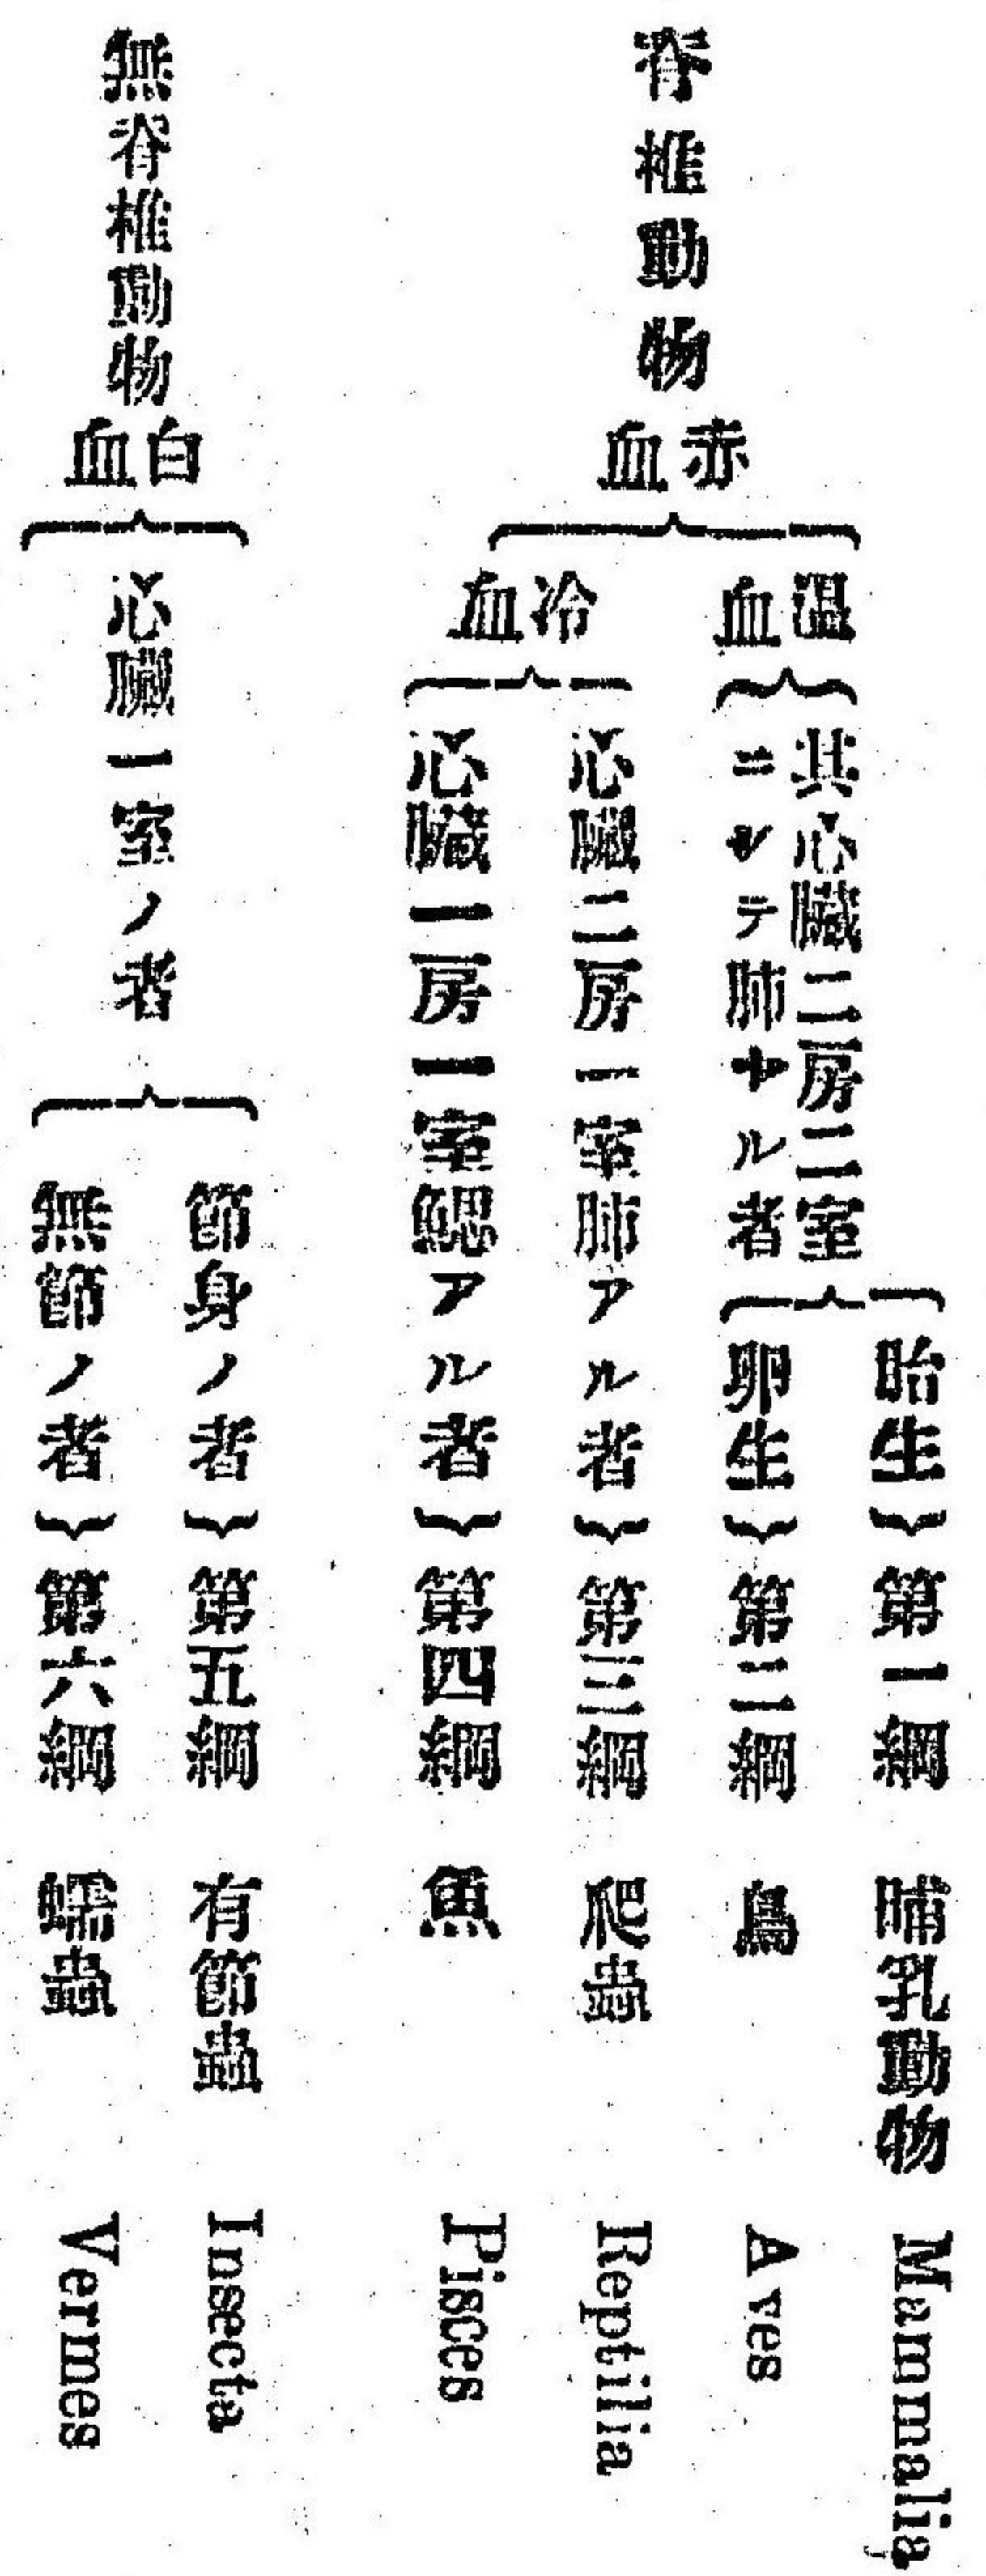 脊椎動物
赤血
温血
其心臓二房二室
ニシテ肺ヤル者
胎生
第一綱
哺乳動物
Mammalia
卵生
第二綱
鳥
Aves
冷血
心臓二房一室肺アル者
第三綱
爬蟲
Reptilia
心臓一房一室鰓アル者
第四綱
魚
Pisces
無脊椎動物
白血
心臓一室ノ者
節身ノ者
第五綱
有節蟲
Insecta
無節ノ者
第六綱
蠕蟲
Vermes